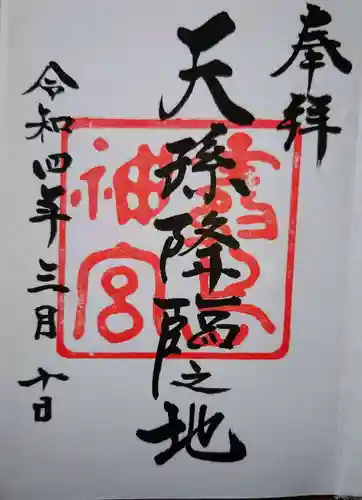 奉拝
天孫降臨之地
令和四年三月十日
神宮